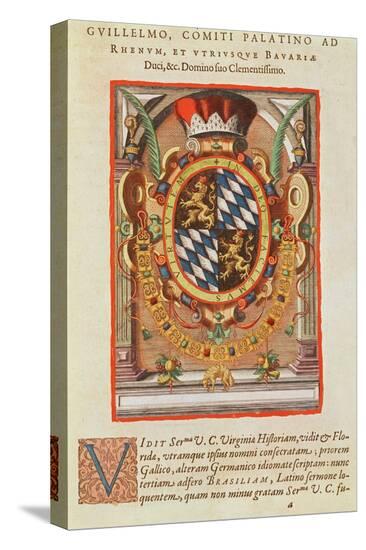 GVILLELMO, COMITI PALATINO AD
RHENVM, ET VTRIVSQVE BAVARIÆ
Duci, &c. Domino suo Clementissimo.
IN DEO FACIAMUS VIRTUTEM
VIDIT Serma V. C. Virginiæ Historiam, vidit & Flo-
ridæ, utramque ipsius nomini consecratam; priorem
Gallico, alteram Germanico idiomate scriptam: nunc
tertiam adfero BRASILIAM, Latino sermone lo-
quentem, quam non minus gratam Sermæ V. C. fu-
a